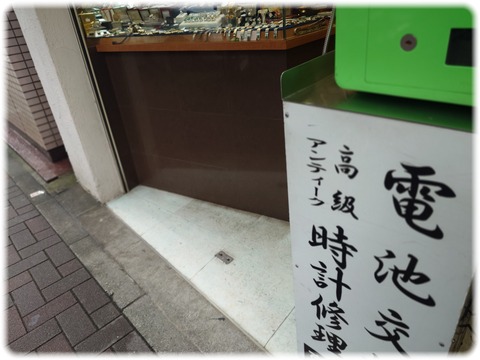 電池交
高級
アンティーク
時計修理